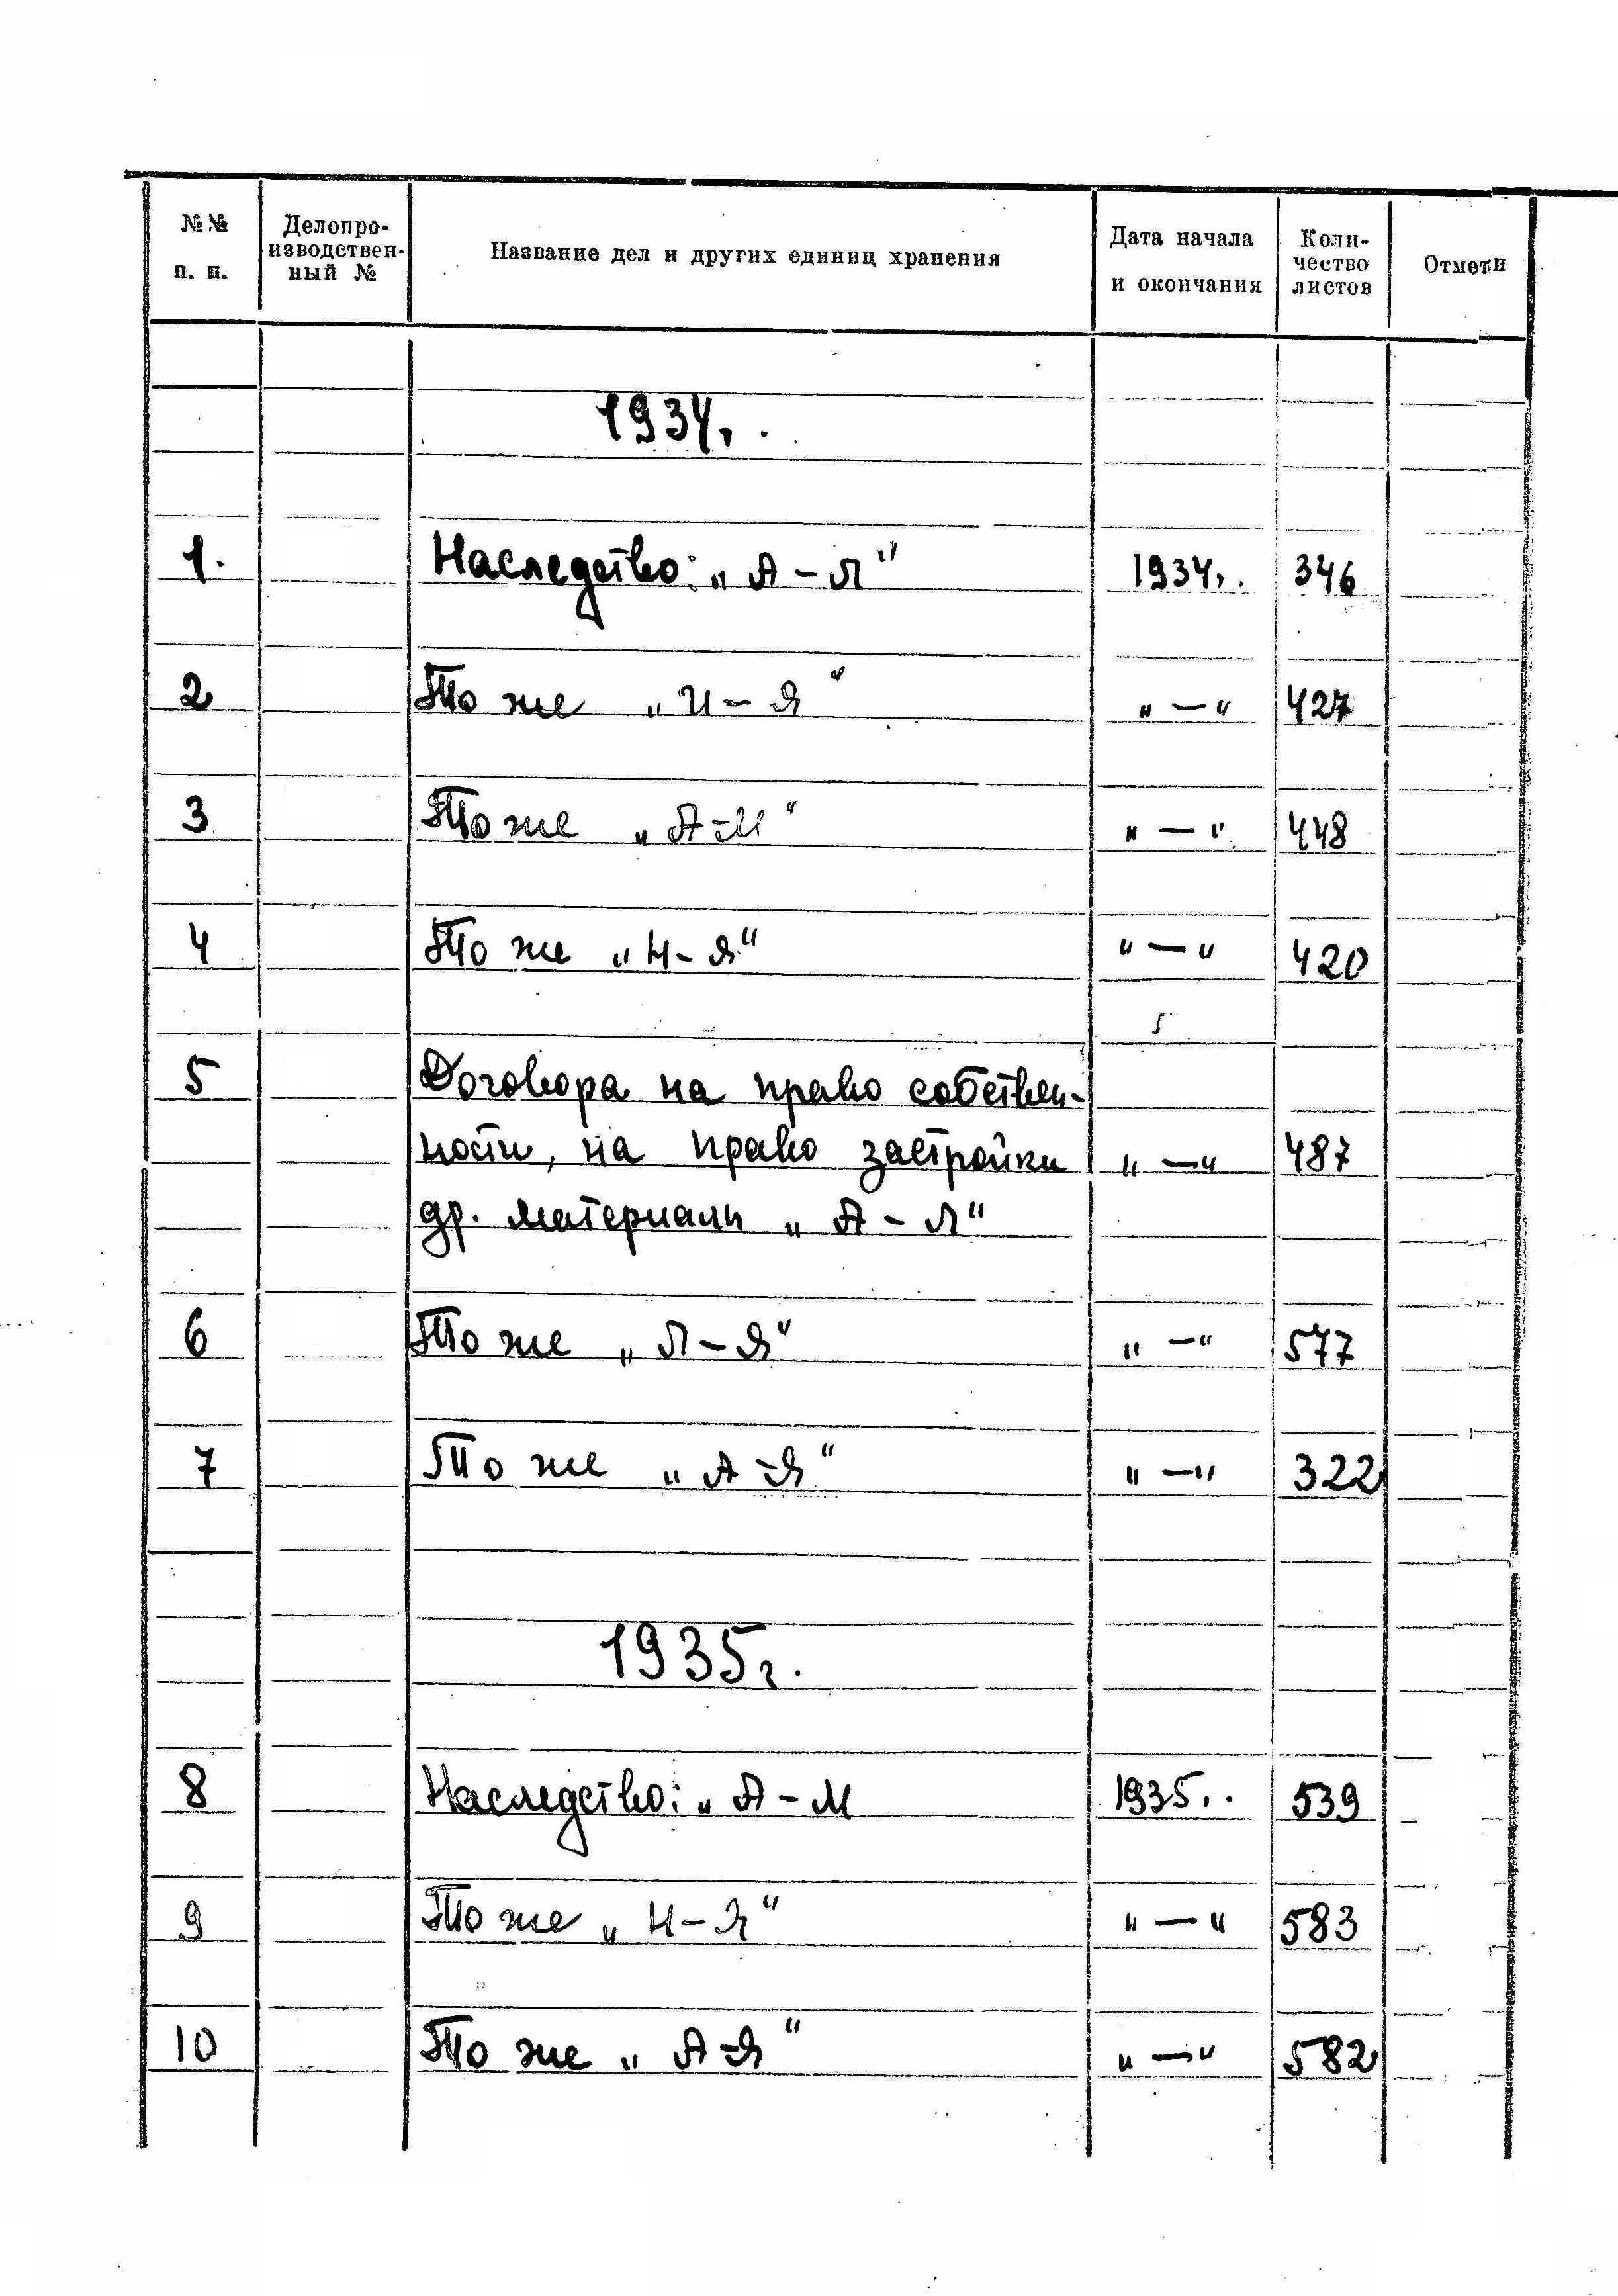 №№ п. п. Делопро-изводствен-ный № Название дел и других единиц хранения Дата начала и окончания Коли-чество листов Отметки
1934г.
1. Наследство: „А – Л" 1934г. 346
2 То же „И – Я" „ — " 427
3 То же „А – М" „ — " 448
4 То же „Н – Я" „ — " 420
5 Договора на право собствен-
ности, на право застройки „ — " 487
др. материалы „А – Л"
6 То же „Л – Я" „ — " 577
7 То же „А – Я" „ — " 322
1935г.
8 Наследство: „А – М 1935г. 539
9 То же „Н – Я" „ — " 583
10 То же „А – Я" „ — " 582